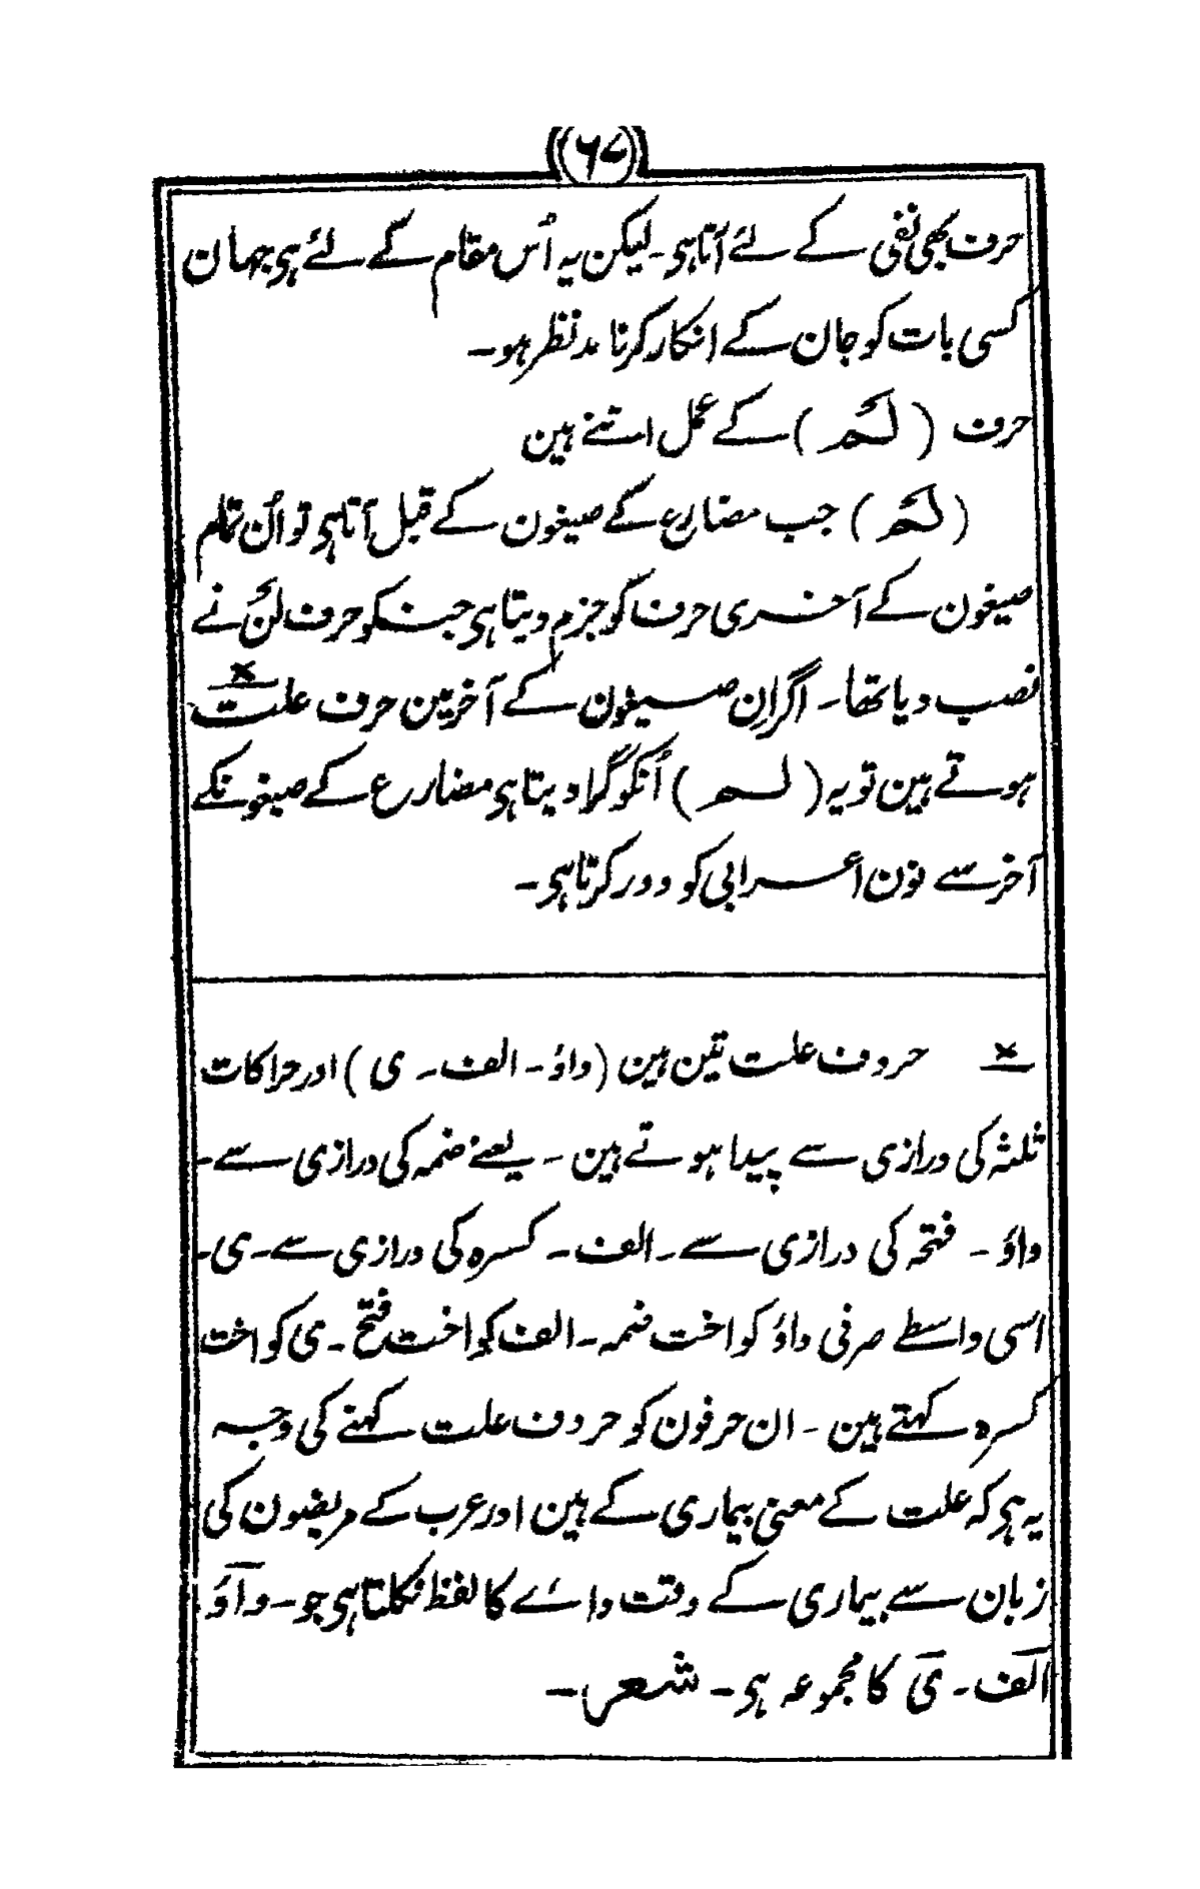 (۶۷)
حرف بھی نفی کے لئے آتا ہی۔ لیکن یہ اُس مقام کے لئے ہی جہان
کسی بات کو جان کے انکار کرنا مدنظر ہو۔
حرف (لَمْ) کے عمل اتنے ہین
(لَمْ) جب مضارع کے صیغون کے قبل آتا ہی تو اُن تمام
صیغون کے آخری حرف کو جزم دیتا ہی جنکو حرف لَنْ نے
نصب دیا تھا۔ اگر اِن صیغون کے آخر مین حرف علت×
ہوتے ہین تو یہ (لم) اُنکو گرا دیتا ہی مضارع کے صیغونکے
آخر سے نون اعرابی کو دور کرتا ہی۔
× حروف علت تین ہین (واؤ۔ الف۔ ی) اور حراکات
ثلثہ کی درازی سے پیدا ہوتے ہین۔ یعنے ضمہ کی درازی سے۔
واؤ۔ فتحہ کی درازی سے۔ الف۔ کسرہ کی درازی سے۔ ی۔
اسی واسطے صرفی واؤ کو اخت ضمہ۔ الف کو اخت فتح۔ ی کو اخت
کسرہ کہتے ہین۔ ان حرفون کو حروف علت کہنے کی وجہ
یہ ہی کہ علت کے معنی بیماری کے ہین اور عرب کے مریضون کی
زبان سے بیماری کے وقت وائے کا لفظ نکلتا ہی جو۔ واؤ۔
الف۔ ی کا مجموعہ ہی۔ شعر۔